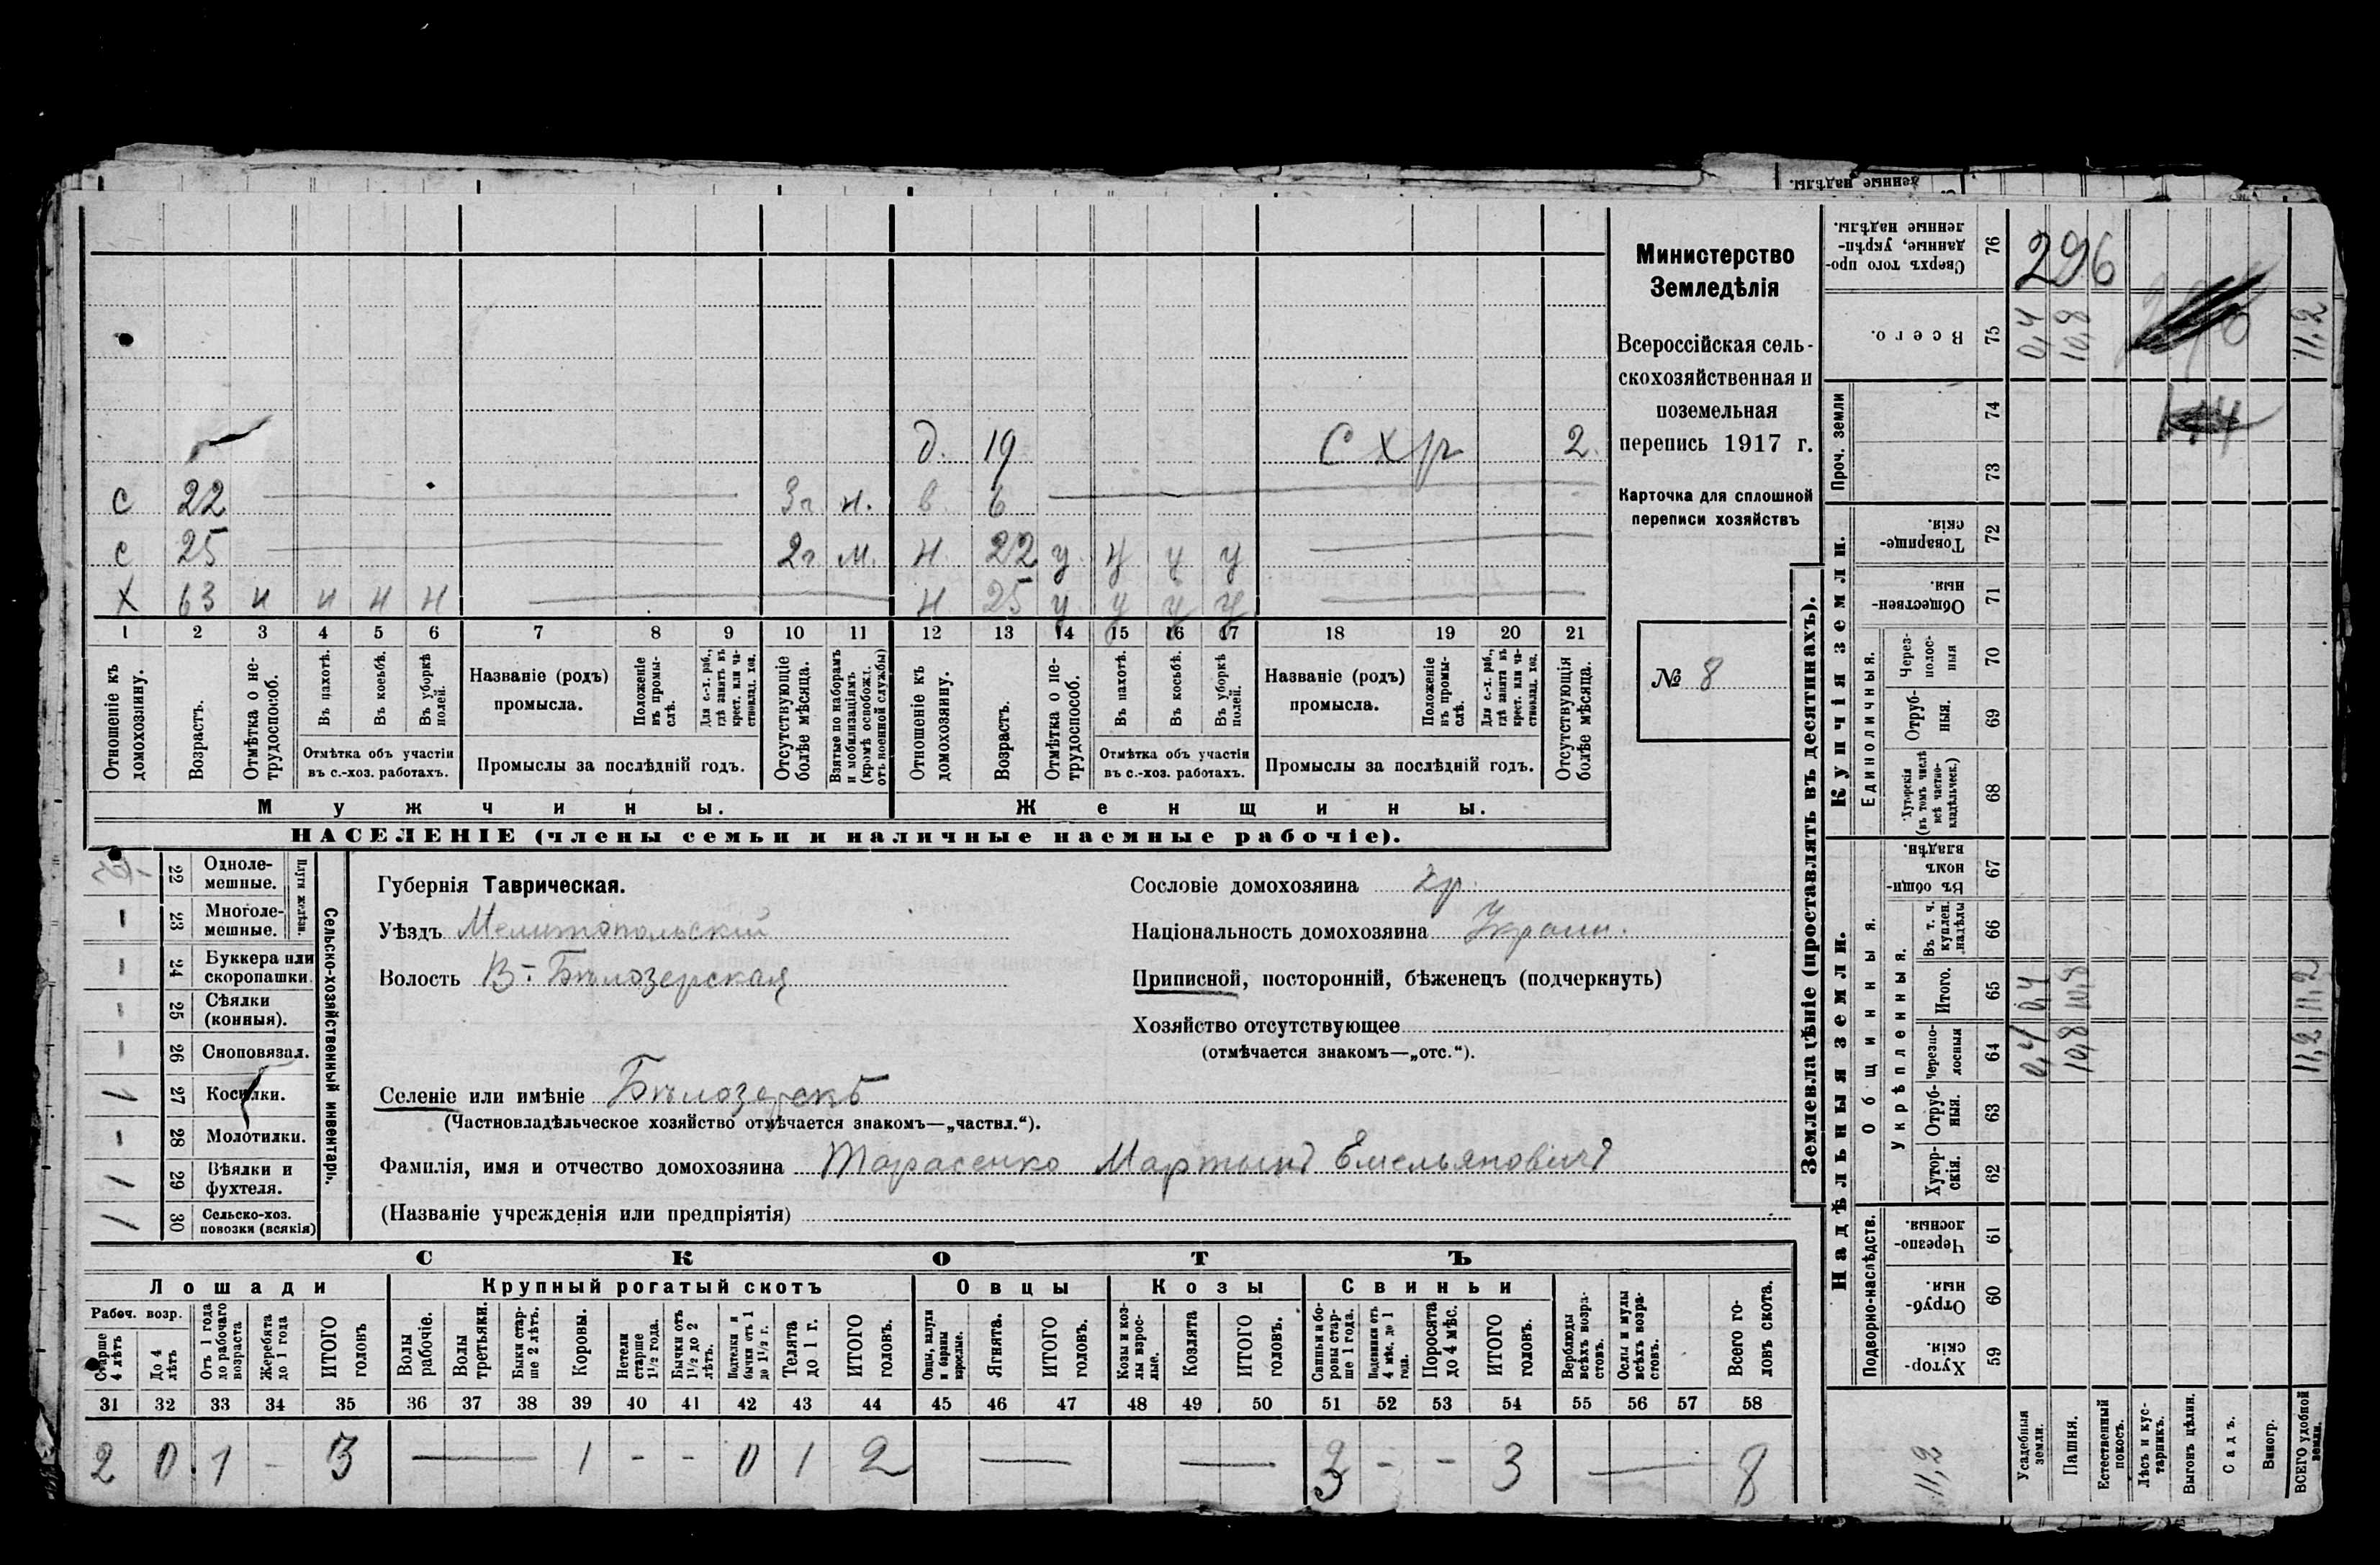 денные надѣлы.
д. 19 С Х р 2.
с 22 3 г. н. в. 6
с 25 2 г. м. н. 22 у. у у у
Х 63 н н н н н 25 у. у у у
1 2 3 4 5 6 7 8 9 10 11 12 13 14 15 16 17 18 19 20 21
Отношеніе къ домохозяину.
Возрастъ.
Отмѣтка о не-трудоспособ.
Въ пахотѣ.
Въ косьбѣ.
Въ уборкѣ полей.
Отмѣтка объ участіи
въ с.-хоз. работахъ.
Названіе (родъ)
промысла.
Положеніе въ промы-слѣ.
Для с.-х. раб., гдѣ занятъ въ крест. или ча-стновлад. хоз.
Промыслы за послѣдній годъ.
Отсутствующіе болѣе мѣсяца.
Взятые по наборамъ и мобилизаціямъ (кромѣ освобожд. отъ военной службы)
Отношеніе къ домохозяину.
Возрастъ.
Отмѣтка о не-трудоспособ.
Въ пахотѣ.
Въ косьбѣ.
Въ уборкѣ полей.
Отмѣтка объ участіи
въ с.-хоз. работахъ.
Названіе (родъ)
промысла.
Положеніе въ промы-слѣ.
Для с.-х. раб., гдѣ занята въ крест. или ча-стновлад. хоз.
Промыслы за послѣдній годъ.
Отсутствующія болѣе мѣсяца.
Мужчины. Женщины.
НАСЕЛЕНІЕ (члены семьи и наличные наемные рабочіе).
Министерство
Земледѣлія
Всероссійская сель-
скохозяйственная и
поземельная
перепись 1917 г.
Карточка для сплошной
переписи хозяйствъ
№ 8
22 Одноле-мешные.
— 23 Многоле-мешные.
Плуги желѣзн.
— 24 Буккера или скоропашки.
— 25 Сѣялки (конныя).
— 26 Сноповязал.
1 27 Косилки.
— 28 Молотилки.
1 29 Вѣялки и фухтеля.
1 30 Сельско-хоз. повозки (всякія)
Сельско-хозяйственный инвентарь.
Губернія Таврическая.
Уѣздъ Мелитопольскій
Волость В.-Бѣлозерская
Селеніе или имѣніе Бѣлозерскъ
(Частновладѣльческое хозяйство отмѣчается знакомъ—„частвл.“).
Фамилія, имя и отчество домохозяина Тарасенко Мартынъ Емельяновичъ
(Названіе учрежденія или предпріятія)
Сословіе домохозяина кр.
Національность домохозяина Украин.
Приписной, посторонній, бѣженецъ (подчеркнуть)
Хозяйство отсутствующее
(отмѣчается знакомъ—„отс.“).
СКОТЪ
Лошади Крупный рогатый скотъ Овцы Козы Свиньи
Рабоч. возр.
Старше 4 лѣтъ
До 4 лѣтъ
Отъ 1 года до рабочаго возраста
Жеребята до 1 года
ИТОГО головъ
Волы рабочіе.
Волы третьяки.
Быки стар-ше 2 лѣтъ.
Коровы.
Нетели старше 1½ года.
Бычки отъ 1½ до 2 лѣтъ.
Подтелки и бычки отъ 1 до 1½ г.
Телята до 1 г.
ИТОГО головъ.
Овцы, валухи и бараны взрослые.
Ягнята.
ИТОГО головъ.
Козы и коз-лы взрос-лые.
Козлята
ИТОГО головъ.
Свиньи и бо-ровы стар-ше 1 года.
Подсвинки отъ 4 мѣс. до 1 года.
Поросята до 4 мѣс.
ИТОГО головъ.
Верблюды всѣхъ возра-стовъ.
Ослы и мулы всѣхъ возра-стовъ.
Всего го-ловъ скота.
31 32 33 34 35 36 37 38 39 40 41 42 43 44 45 46 47 48 49 50 51 52 53 54 55 56 57 58
2 0 1 - 3 — 1 - - 0 1 2 — — 3 - - 3 — 8
Землевладѣніе (проставлять въ десятинахъ).
Сверхъ того про-данные, укрѣп-ленные надѣлы. 76 296
Всего. 75 0,4 10,8 11,2
Проч. земли 74 73
Купчія земли.
Товарище-скія. 72
Обществен-ныя. 71
Единоличныя.
Через-полос-ныя 70
Отруб-ныя. 69
Хуторскія (въ томъ числѣ всѣ частно-владѣльческ.) 68
Надѣльныя земли.
Общинныя.
Въ общин-номъ владѣн. 67
Укрѣпленныя.
Въ т. ч. куплен. надѣлы 66
Итого. 65 0,4 10,8 11,2
Черезпо-лосныя 64 0,4 10,8 11,2
Отруб-ныя. 63
Хутор-скія. 62
Подворно-наслѣдств.
Черезпо-лосныя. 61
Отруб-ныя. 60
Хутор-скія. 59
11,2
Усадебныя земли.
Пашня.
Естественный покосъ.
Лѣсъ и кус-тарникъ.
Выгонъ цѣлин.
Садъ.
Виногр.
ВСЕГО удобной земли.